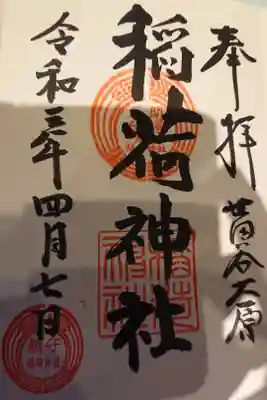 奉拝 苗谷大原
稲荷神社
令和三年四月七日